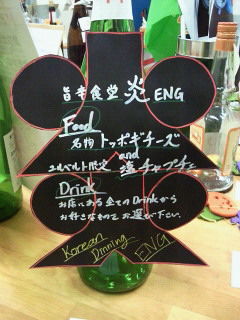 旨辛食堂 炎 ENG
Food
名物 トッポギチーズ
and
ユルベルト限定 塩チャプチェ
Drink
お店にある全てのDrinkから
お好きなものをお選び下さい。
Korean
Dinning
ENG